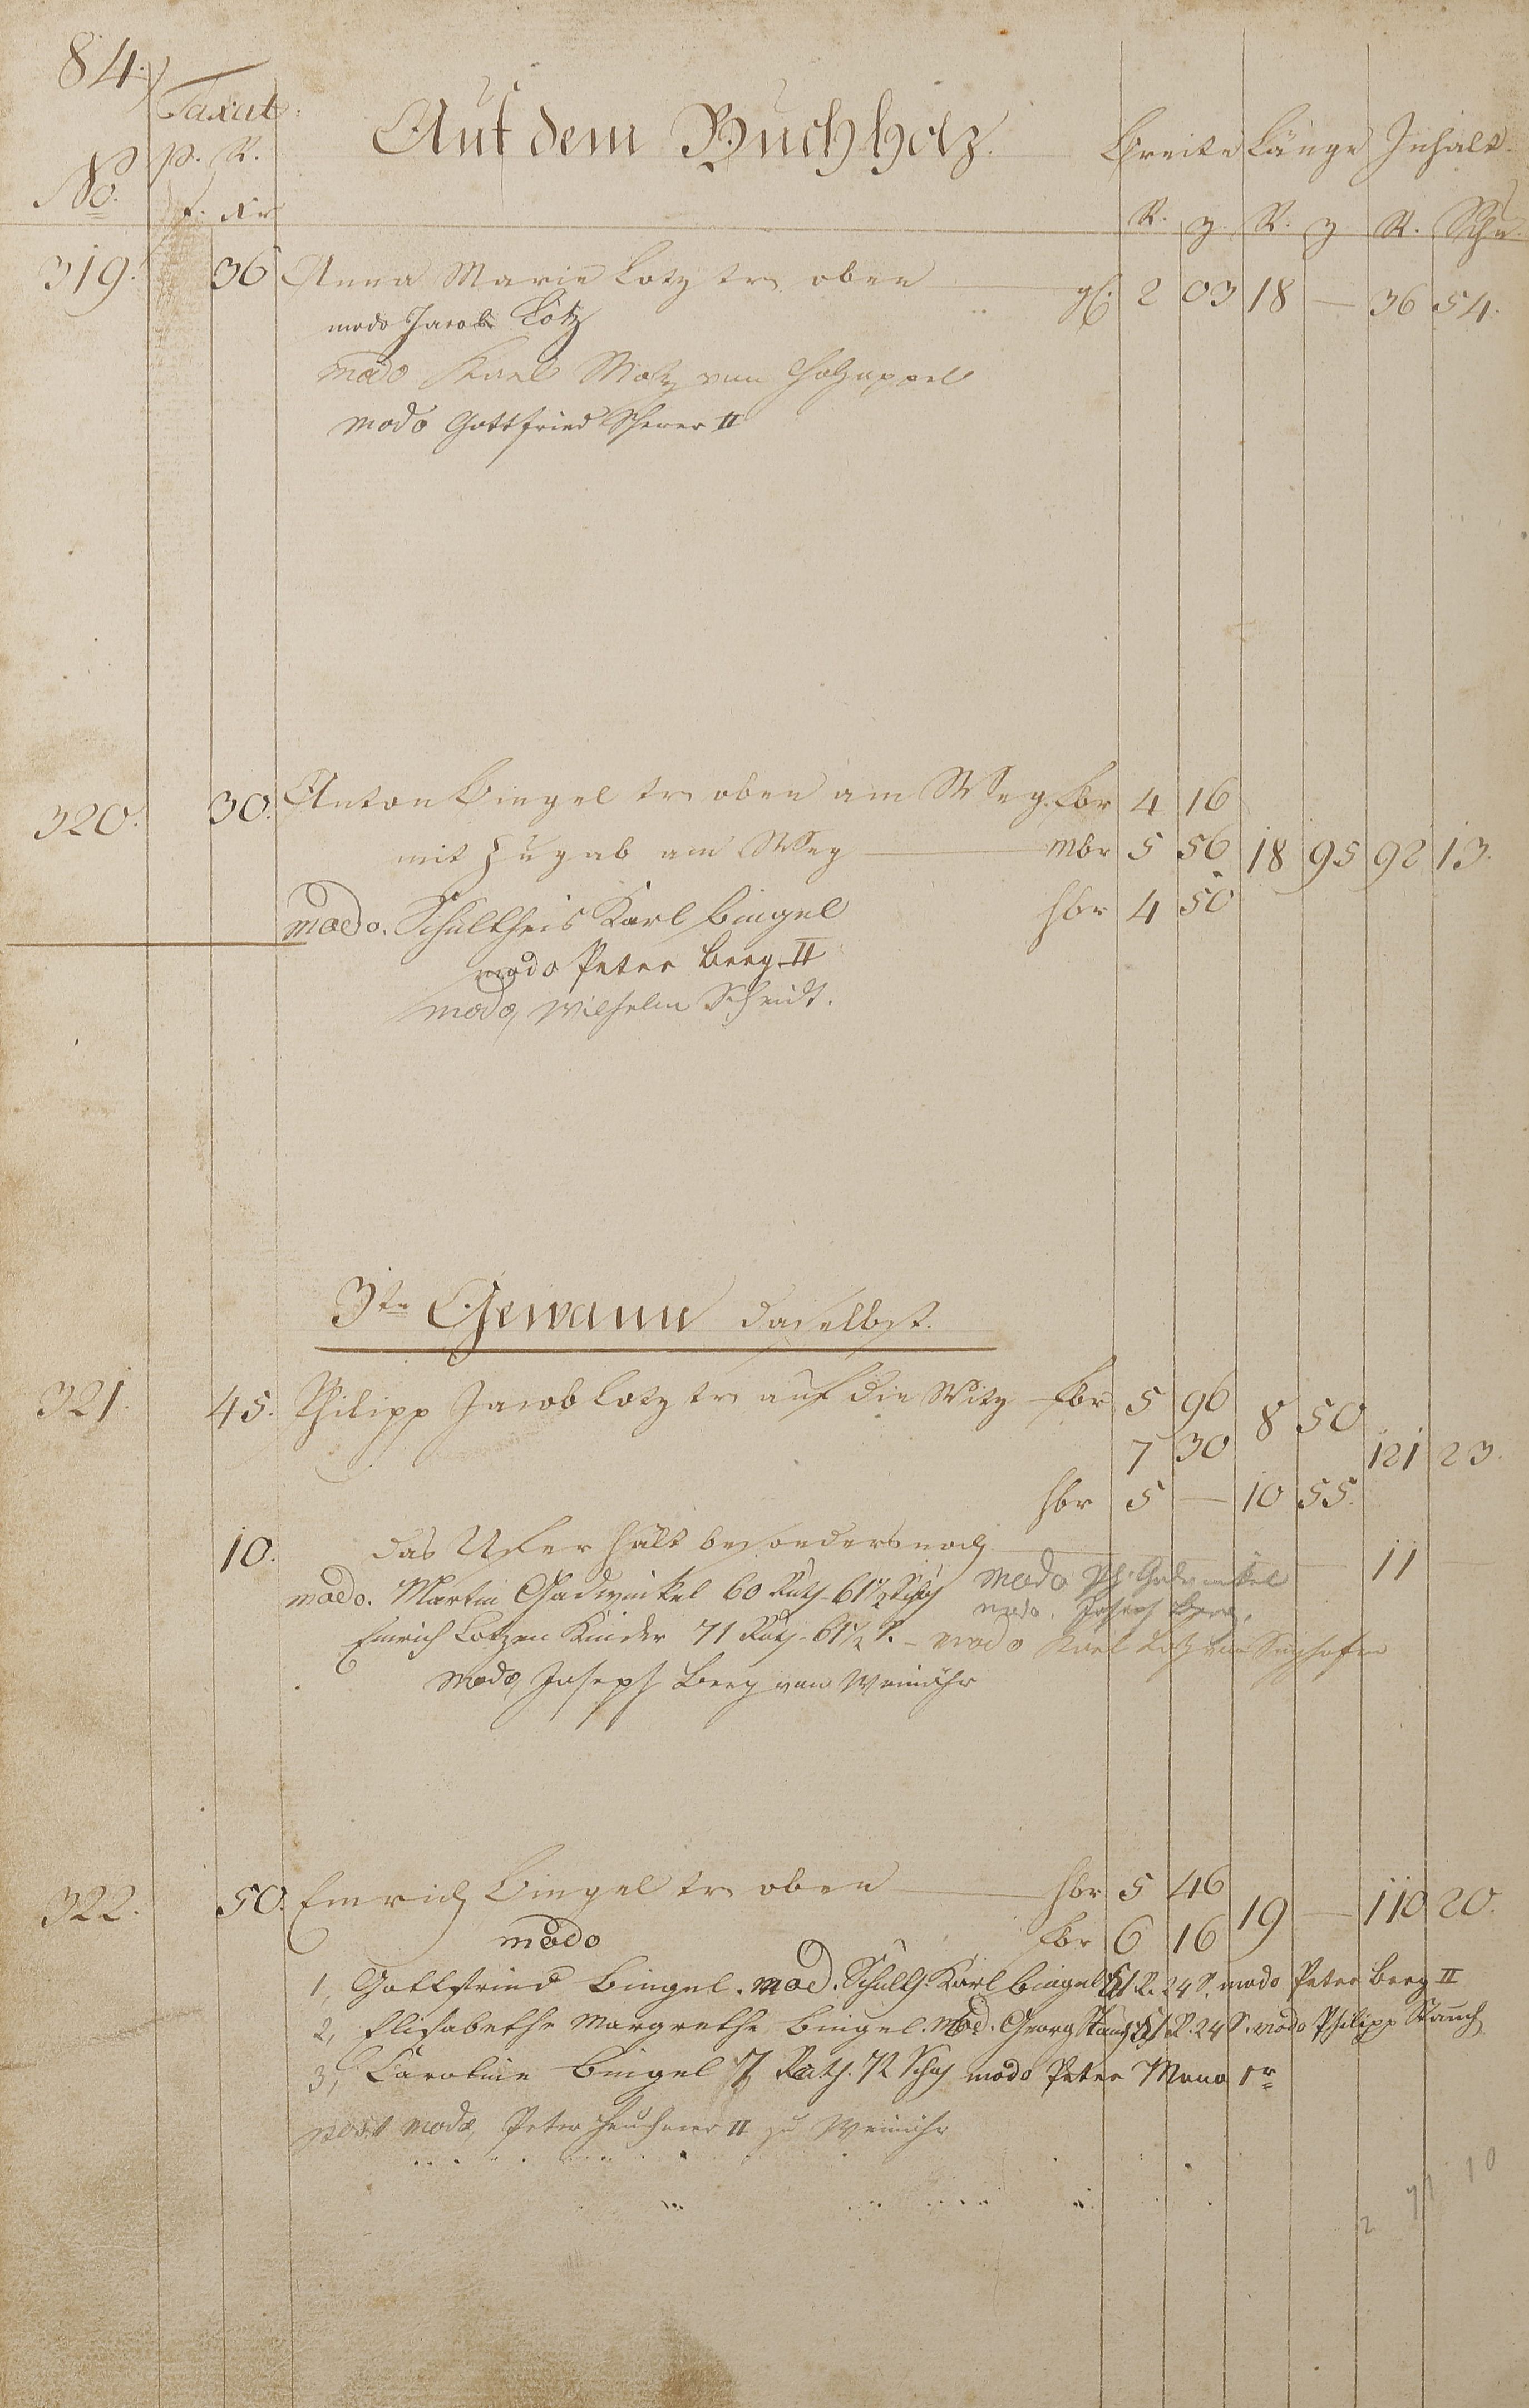 84.
Taxat:
Auf dem Buchholz.
Breite Länge Inhalt
No. p. R.
f. Xr
R. R. R. Schu
319. 36 Anna Marie Lotz tr. oben gl. 2 03 18 — 36 54.
modo Jacob Lotz
modo Karl Motz von Holzappel
modo Gottfried Scherer II
320. 30. Anton Bingel tr. oben am Weg fbr 4 16
mit Zugab am Weg mbr 5 56 18 95 92 13.
modo. Schultheis Karl Bingel hbr 4 50
modo Peter Berg II
modo, Wilhelm Scheidt.
3te Gewann daselbst.
321. 45. Philipp Jacob Lotz tr. auf die Witz fbr 5 96 8 50
7 30 121 23.
hbr 5 — 10 55.
10. das Ufer hält besonders noch — 11 —
modo. Martin Gadwinkel 60 Ruth 61½ Schuh modo Ph. Gadwinkel
modo. Joseph Berg.
Emrich Lotzen Kinder 71 Ruth. 61½ S. – modo Karl Lotz von Singhofen
modo, Joseph Berg von Weinähr
322. 50. Emrich Bingel tr. oben hbr 5 46
modo fbr 6 16 19 — 110 20.
1, Gottfried Bingel. mod. Schulth. Karl Bingel 51 R. 24 S. modo Peter Berg II
2, Elisabethe Margrethe Bingel. Mod. Georg Stauch 51 R. 24 S. modo Philipp Stauch
3, Caroline Bingel 7 Ruth. 72 Schuh modo Peter 1r
post modo, Peter II zu Weinähr